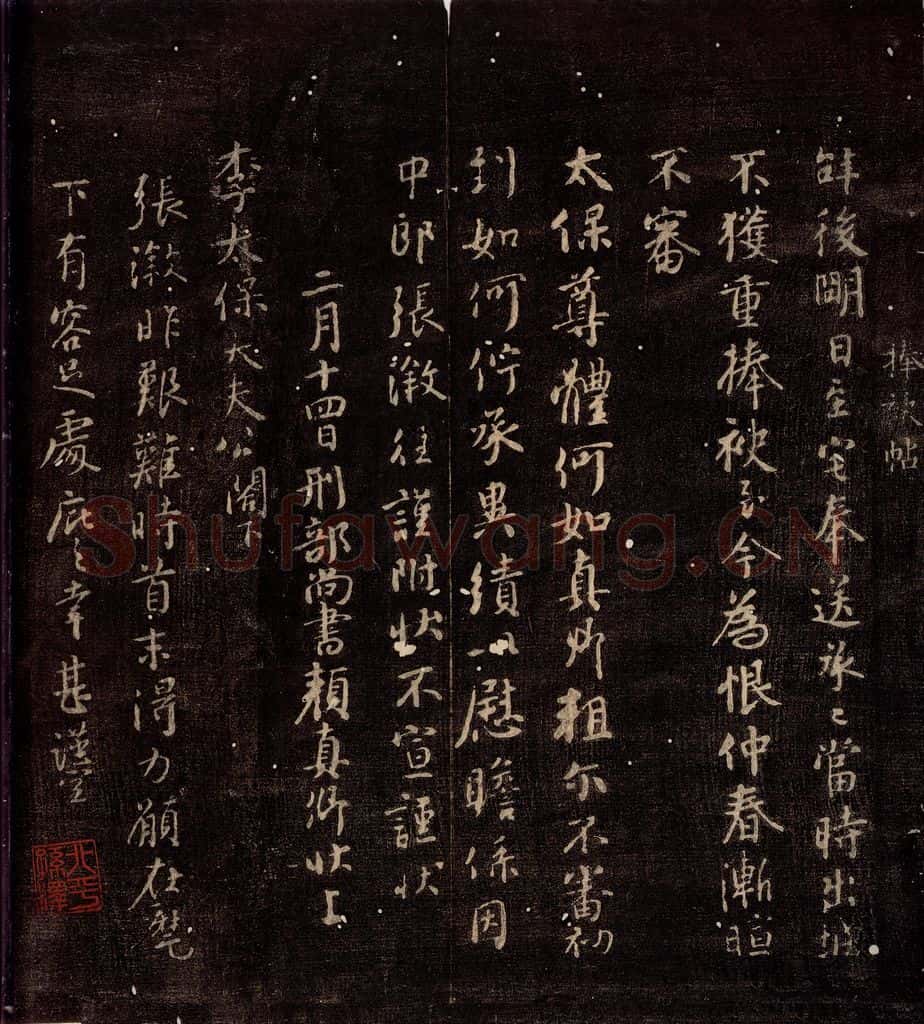 捧袂帖
辞後明日至宅奉送承〻當時出城
不獲重捧袂至今為恨仲春漸暄
不審
太保尊體何如真卿粗尔不審初
到如何佇承異績以慰瞻係因
中郎張澂往謹附状不宣謹状
二月十四日刑部尚書顏真卿状上
李太保大夫公閤下
張澂昨艱難時首末得力願在麾
下有容足處庇之幸甚謹空
北平孫澤
Shufawang.CN